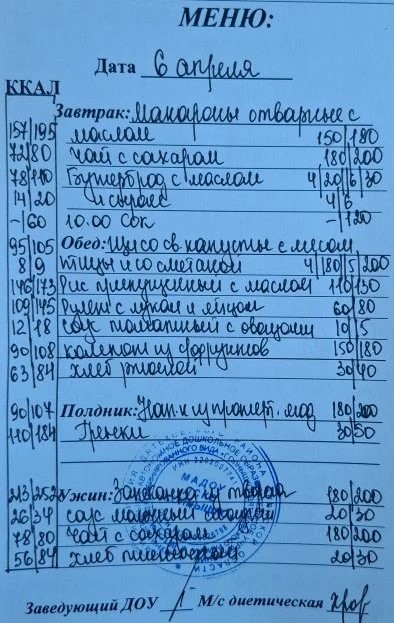 МЕНЮ:
Дата 6 апреля
ККАЛ
Завтрак: Макароны отварные с
157/195 маслом 150/180
72/80 Чай с сахаром 180/200
78/110 Бутерброд с маслом 4/20/6/30
14/20 и сыром 4/6
-/60 10.00 Сок -/120
95/105 Обед: Щи со св капусты с мясом
8/9 птицы и со сметаной 4/180/5/200
146/173 Рис припущенный с маслом 110/130
109/145 Рулет с луком и яйцом 60/80
12/18 Соус томатный с овощами 10/5
90/108 Компот из фруктов 150/180
63/84 Хлеб ржаной 30/40
90/107 Полдник: Нап-к из 180/200
110/184 Гренки 30/50
213/252 Ужин: Запеканка из творога 180/200
26/34 Соус молочный 20/30
78/80 Чай с сахаром 180/200
56/84 Хлеб пшеничный 20/30
МАДОУ
Заведующий ДОУ М/с диетическая